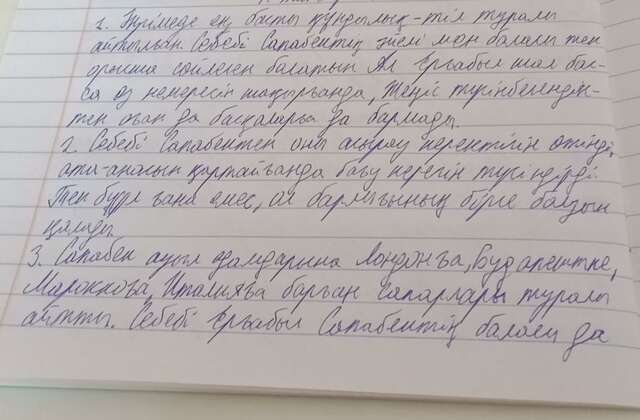 1. Әңгімеде ең басты құндылық - тіл туралы
айтылған. Себебі Сапабектің әйелі мен баласы тек
орысша сөйлеген болатын. Ал Ерғабыл шал бол-
са өз немересін шақырғанда, Теңіз түсінбегендік-
тен оған да басқаларға да бармады.
2. Себебі Сапабектен оны асырау керектігін өтінді,
ата-анасын қартайғанда бағу керегін түсіндірді.
Тек бұл ғана емес, ал барлығының бірге болуын
қалады.
3. Сапабек ауыл адамдарына Лондонға, Будапештке,
Мароккоға, Италияға барған сапарлары туралы
айтты. Себебі Ерғабыл Сапабектің баласы да